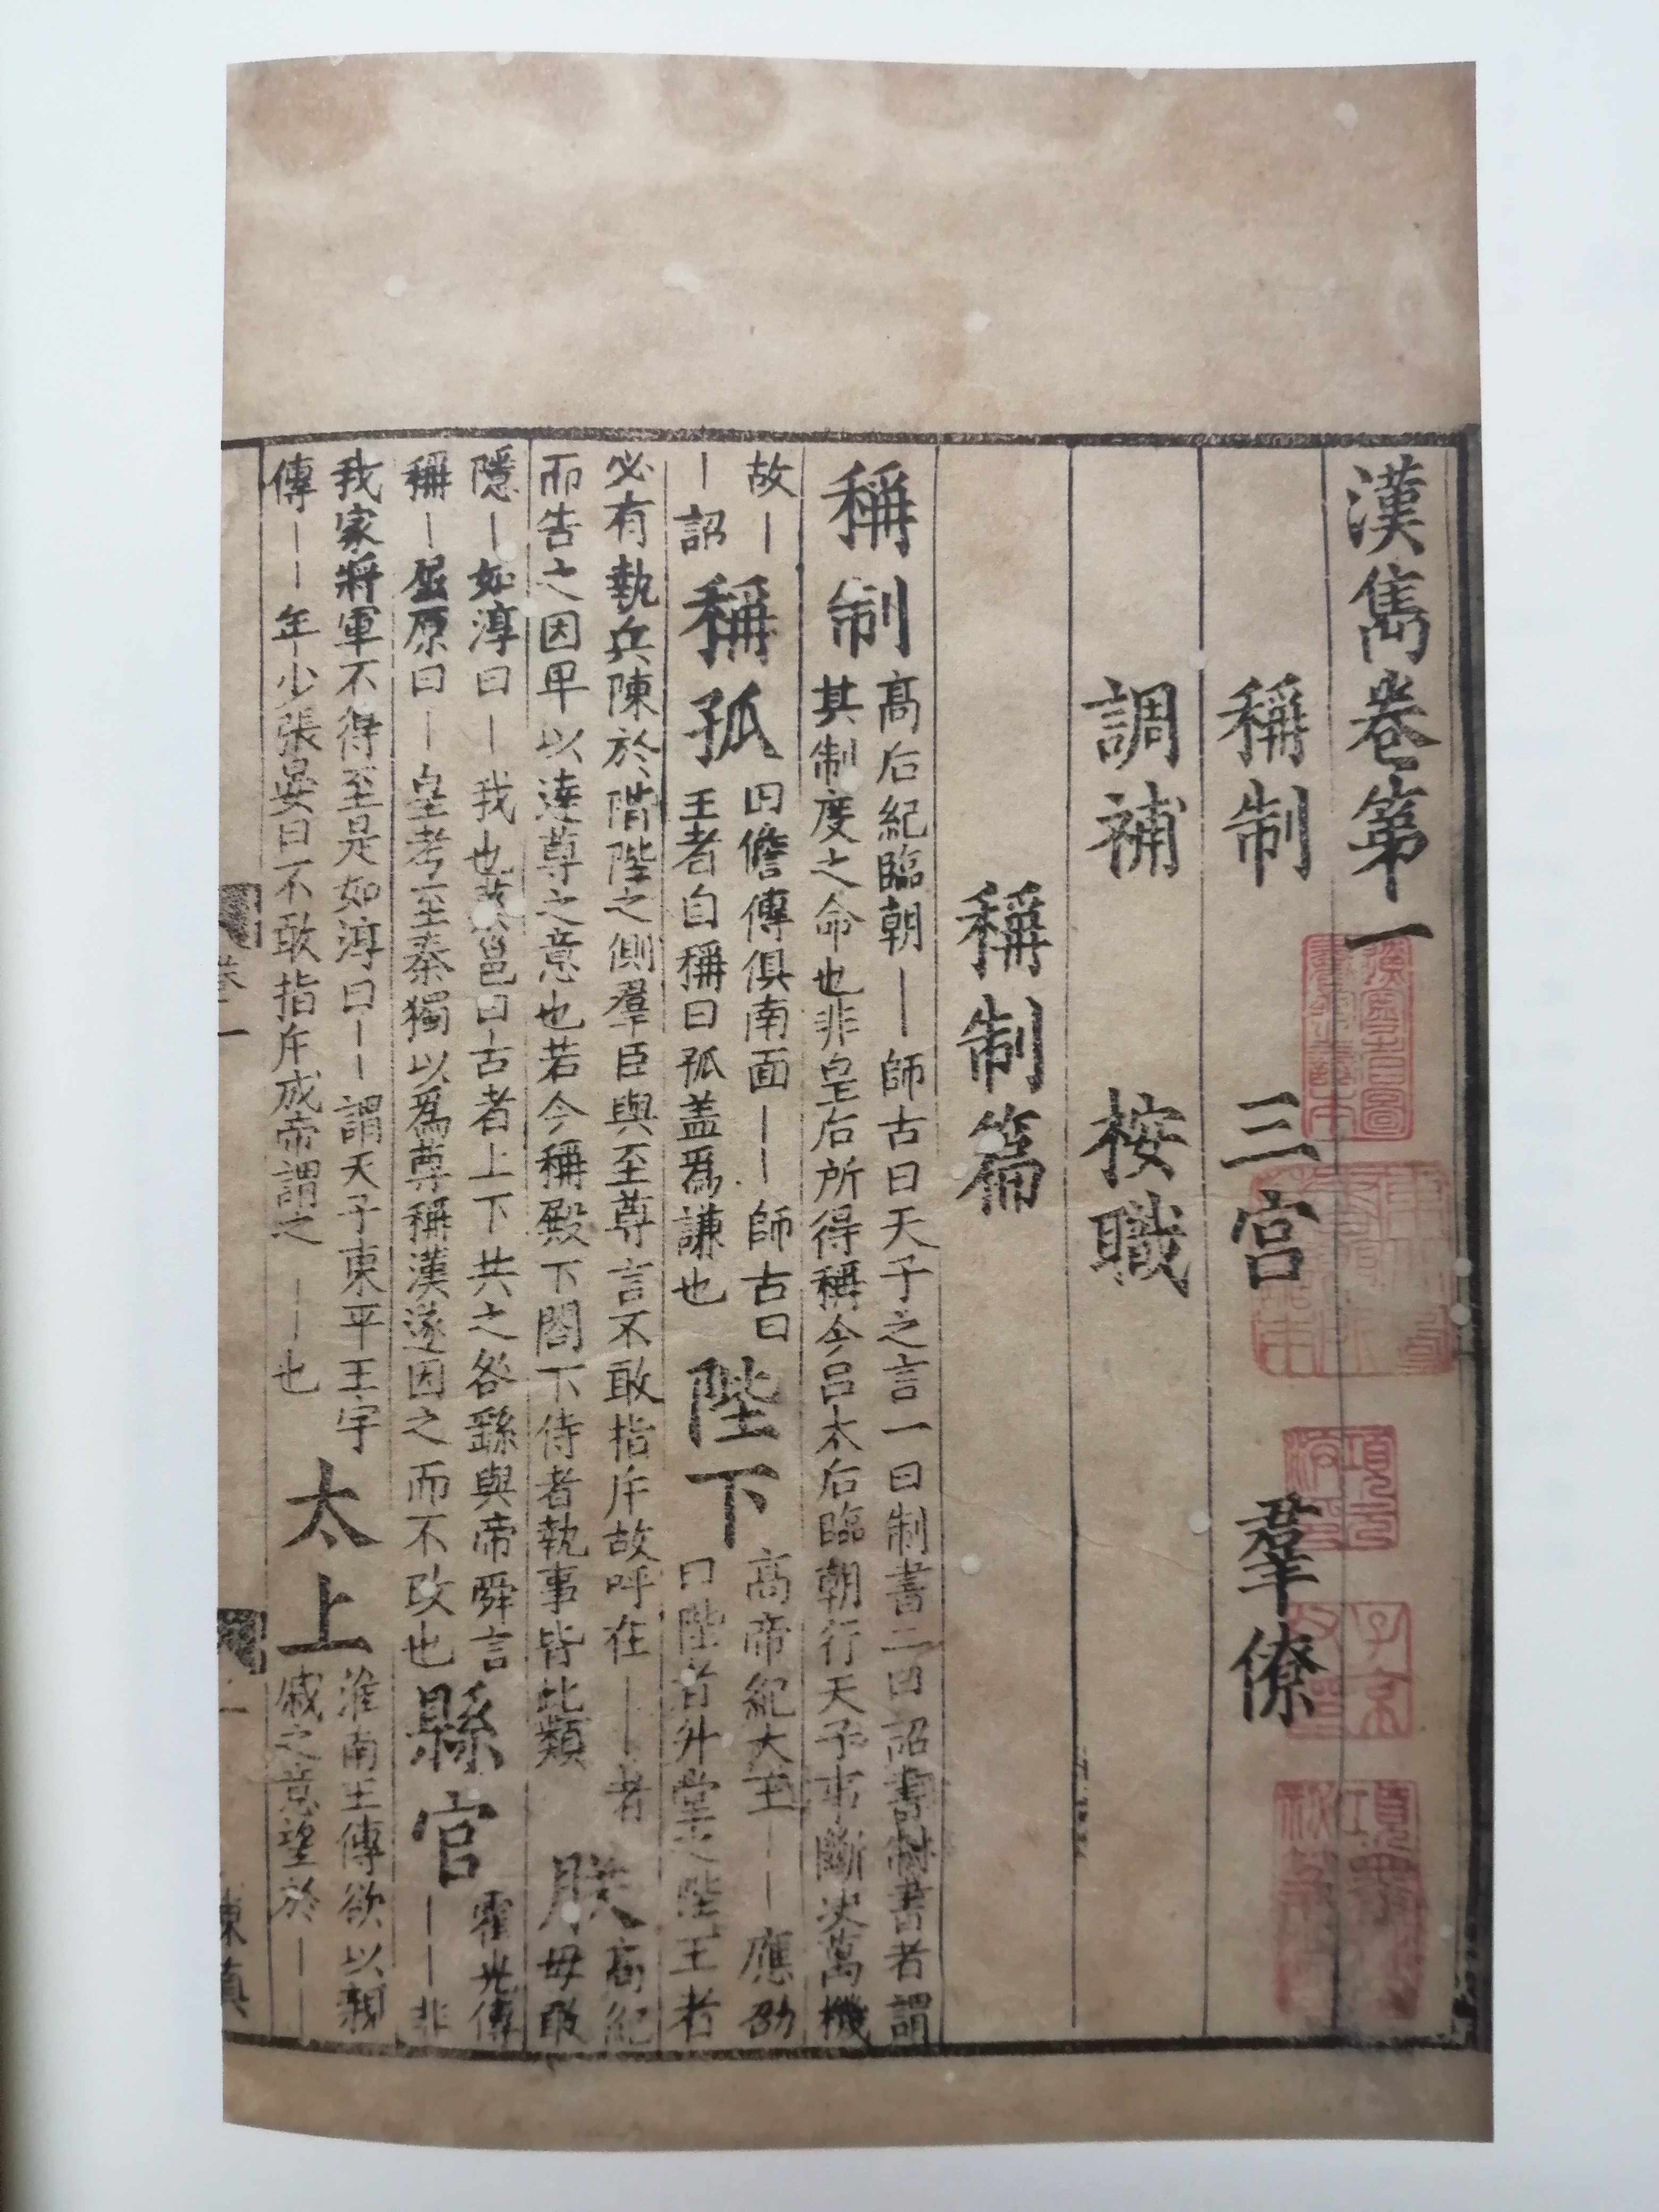 漢雋卷第一
稱制　三宮　羣僚
調補　按職
稱制篇
稱制
高后紀臨朝——師古曰天子之言一曰制書二曰詔書制書者謂
其制度之命也非皇后所得稱今呂太后臨朝行天子事斷決萬機
故——
—詔
稱孤
田儋傳俱南面——師古曰
王者自稱曰孤蓋爲謙也
陛下
高帝紀大王——應劭
曰陛者升堂之陛王者
必有執兵陳於階陛之側羣臣與至尊言不敢指斥故呼在——者
而告之因卑以達尊之意也若今稱殿下閤下侍者執事皆此類
朕
高紀
毋敢
隱—如淳曰—我也蔡邕曰古者上下共之咎繇與帝舜言
稱—屈原曰—皇考至秦獨以爲尊稱漢遂因之而不改也
縣官
霍光傳
——非
我家將軍不得至是如淳曰——謂天子東平王宇
傳——年少張晏曰不敢指斥成帝謂之——也
太上
淮南王傳欲以親
戚之意望於——
卷一
一
陳真
項子
子京
項